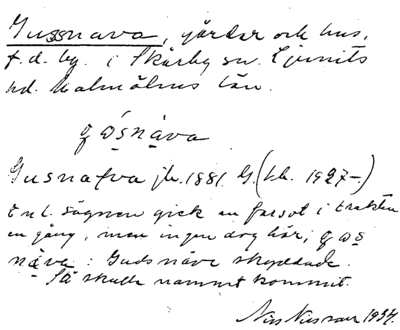 Gussnava, gårdar och hus,
f.d. by. i Skårby sn. Ljunits
hd. Malmöhus län.
gɷ́snàva
Gusnafva jb. 1881. G. (bl. 1927-.)
Enl. sägnen gick en farsot i trakten
en gång, men ingen dog här, gɷs
näva: Guds näve skyddade.
Så skulle namnet kommit.
Nils Nilsson 1934.